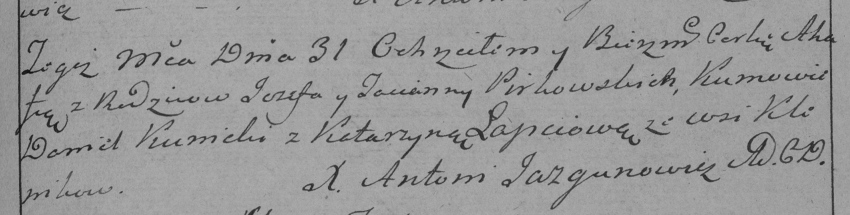 wią
Tegoż Mca Dnia 31 Ochrzciłem y Bierzm Corkię Aha
fię z Rodzicow Jozefa y Joanny Pirkowskich, Kumowie
Daniel Kunicki z Katarzyną Łapciową ze wsi Kle
nikow.
X. Antoni Jazgunowicz AD.CD.